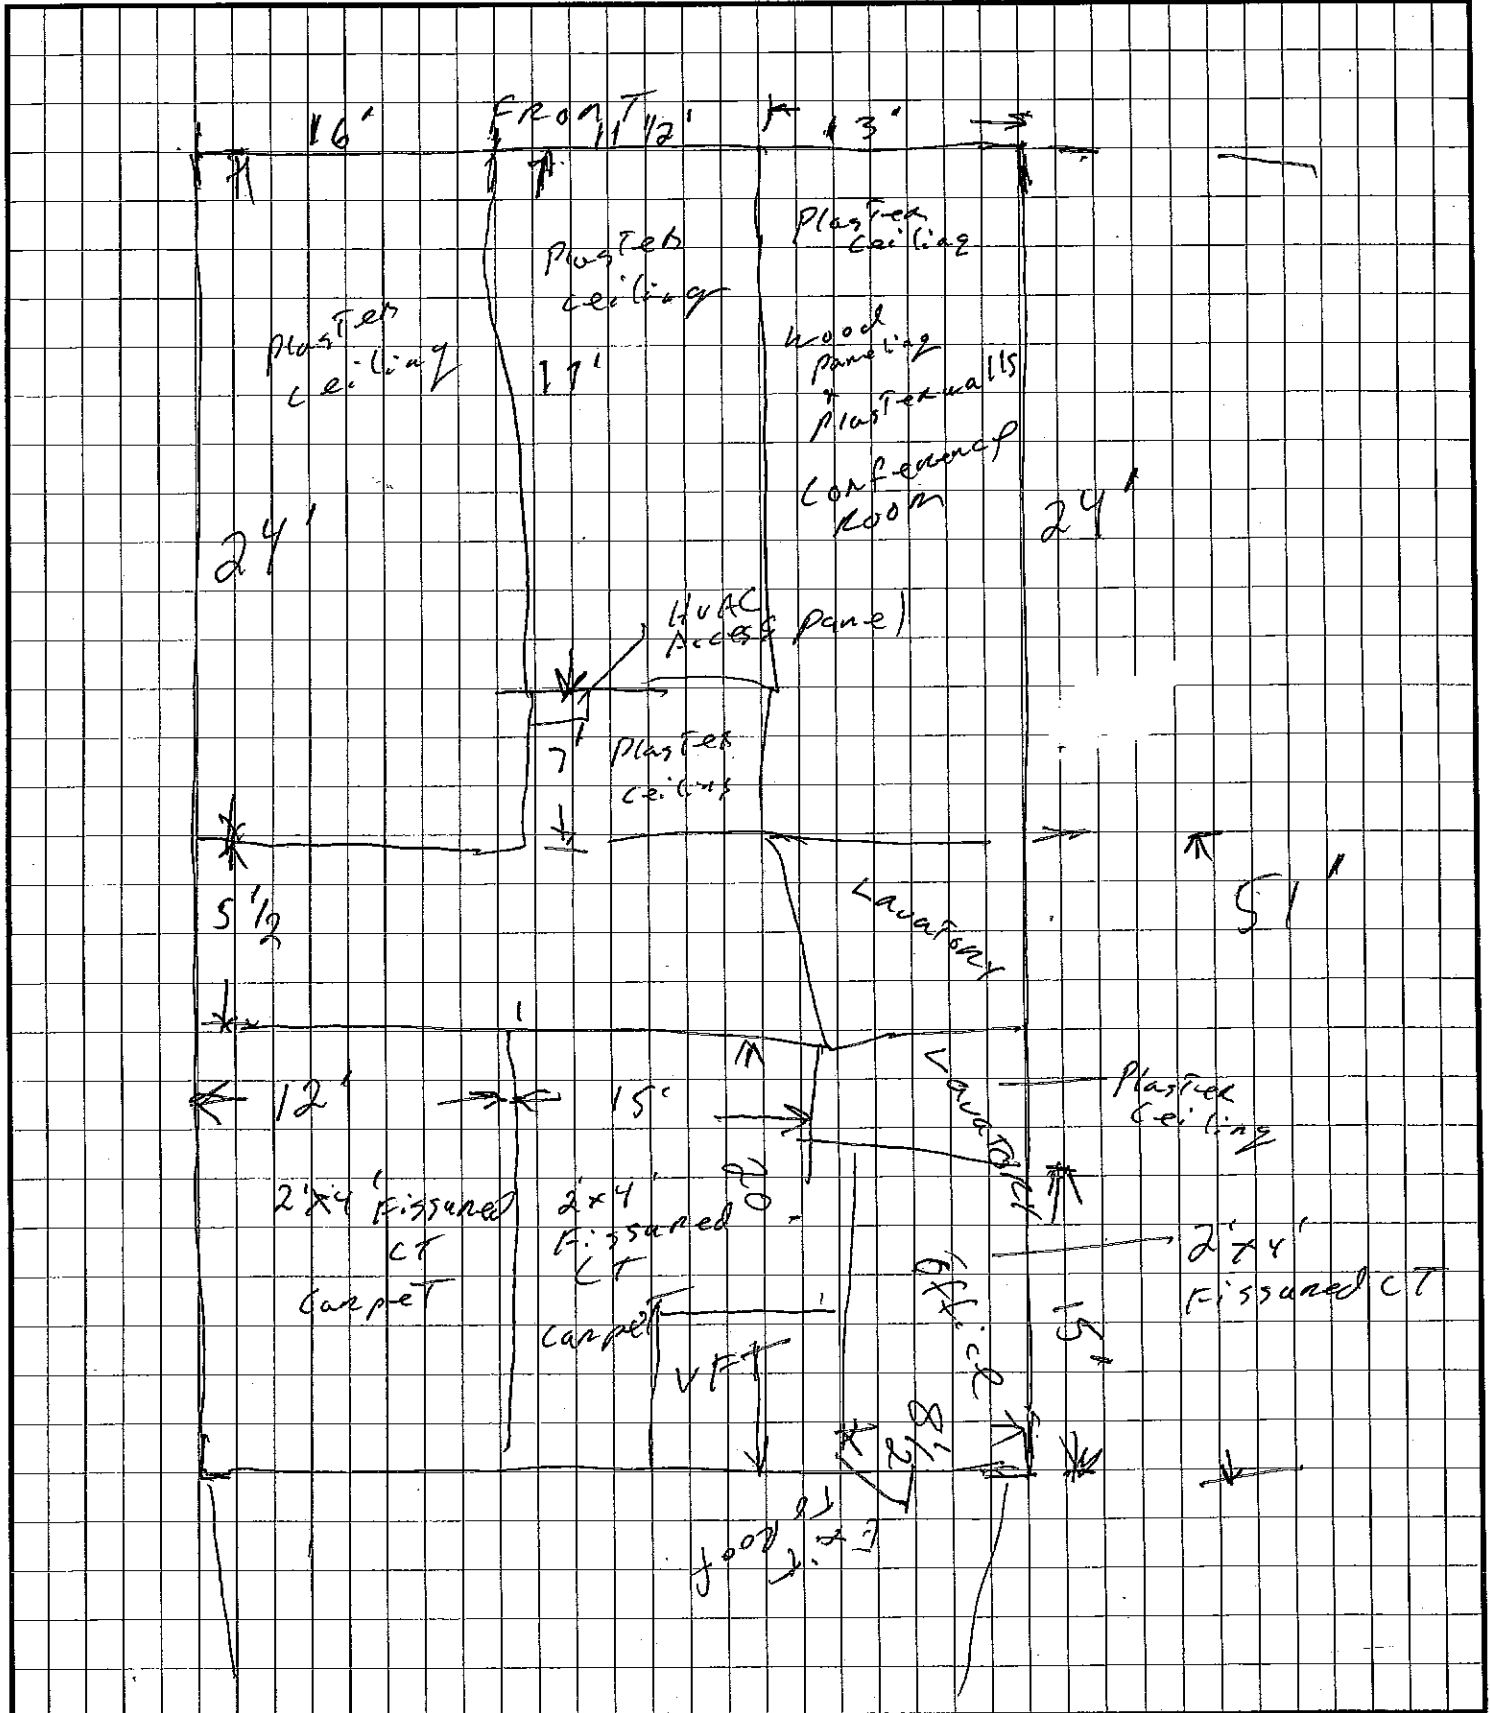 FRONT
16' 11 1/2' 13'
Plaster
ceiling
Plaster
ceiling
17'
Plaster
ceiling
wood
paneling
+
Plaster walls
Conference
Room
24'
24'
HVAC
Access Panel
7'
Plaster
ceiling
5 1/2'
Lavatory
51'
12' 15'
Lavatory
Plaster
Ceiling
20'
2'x4' Fissured
CT
Carpet
2'x4'
Fissured
CT
Carpet
VFT
Office
2'x4'
Fissured CT
15'
8 1/2
Exit
To
Roof